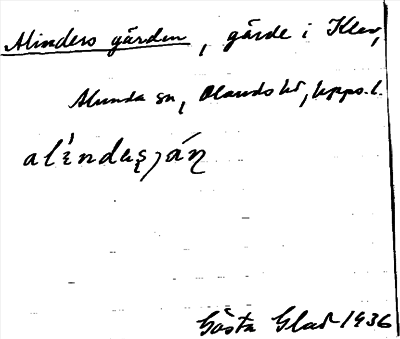 Alinders gärden, gärde i Klev,
Alunda sn, Olands hd, Upps. l.
Gösta Glad 1936